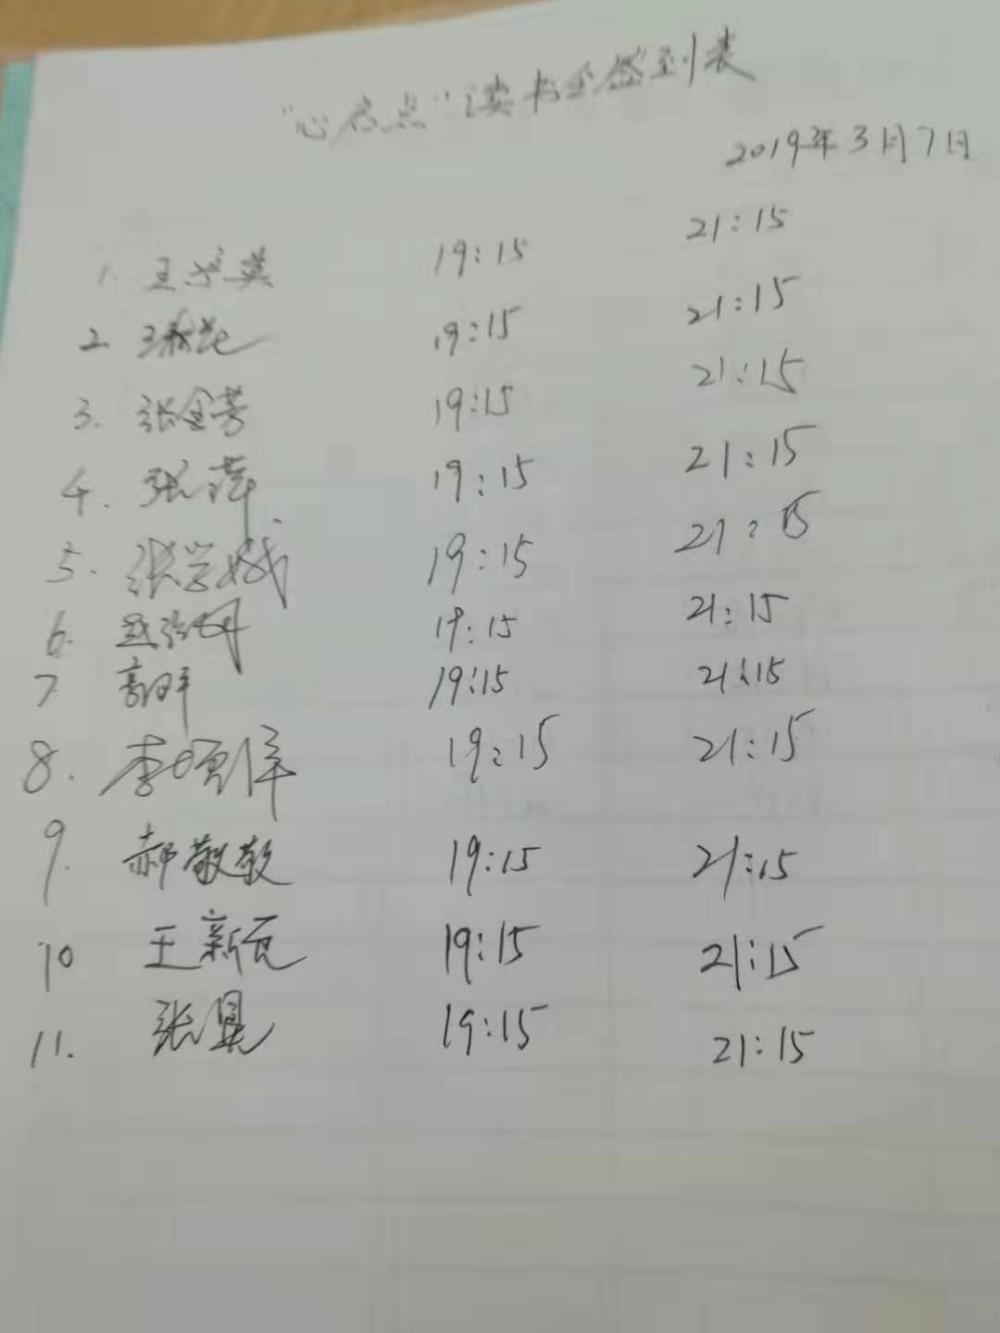 "心启点"读书会签到表
2019年3月7日
1. 王 英 19:15 21:15
2 19:15 21:15
3. 张金芳 19:15 21:15
4. 张萍 19:15 21:15
5. 张学 19:15 21:15
6. 19:15 21:15
7 19:15 21:15
8. 李 19:15 21:15
9. 郝敬敬 19:15 21:15
10 王新 19:15 21:15
11. 张昊 19:15 21:15